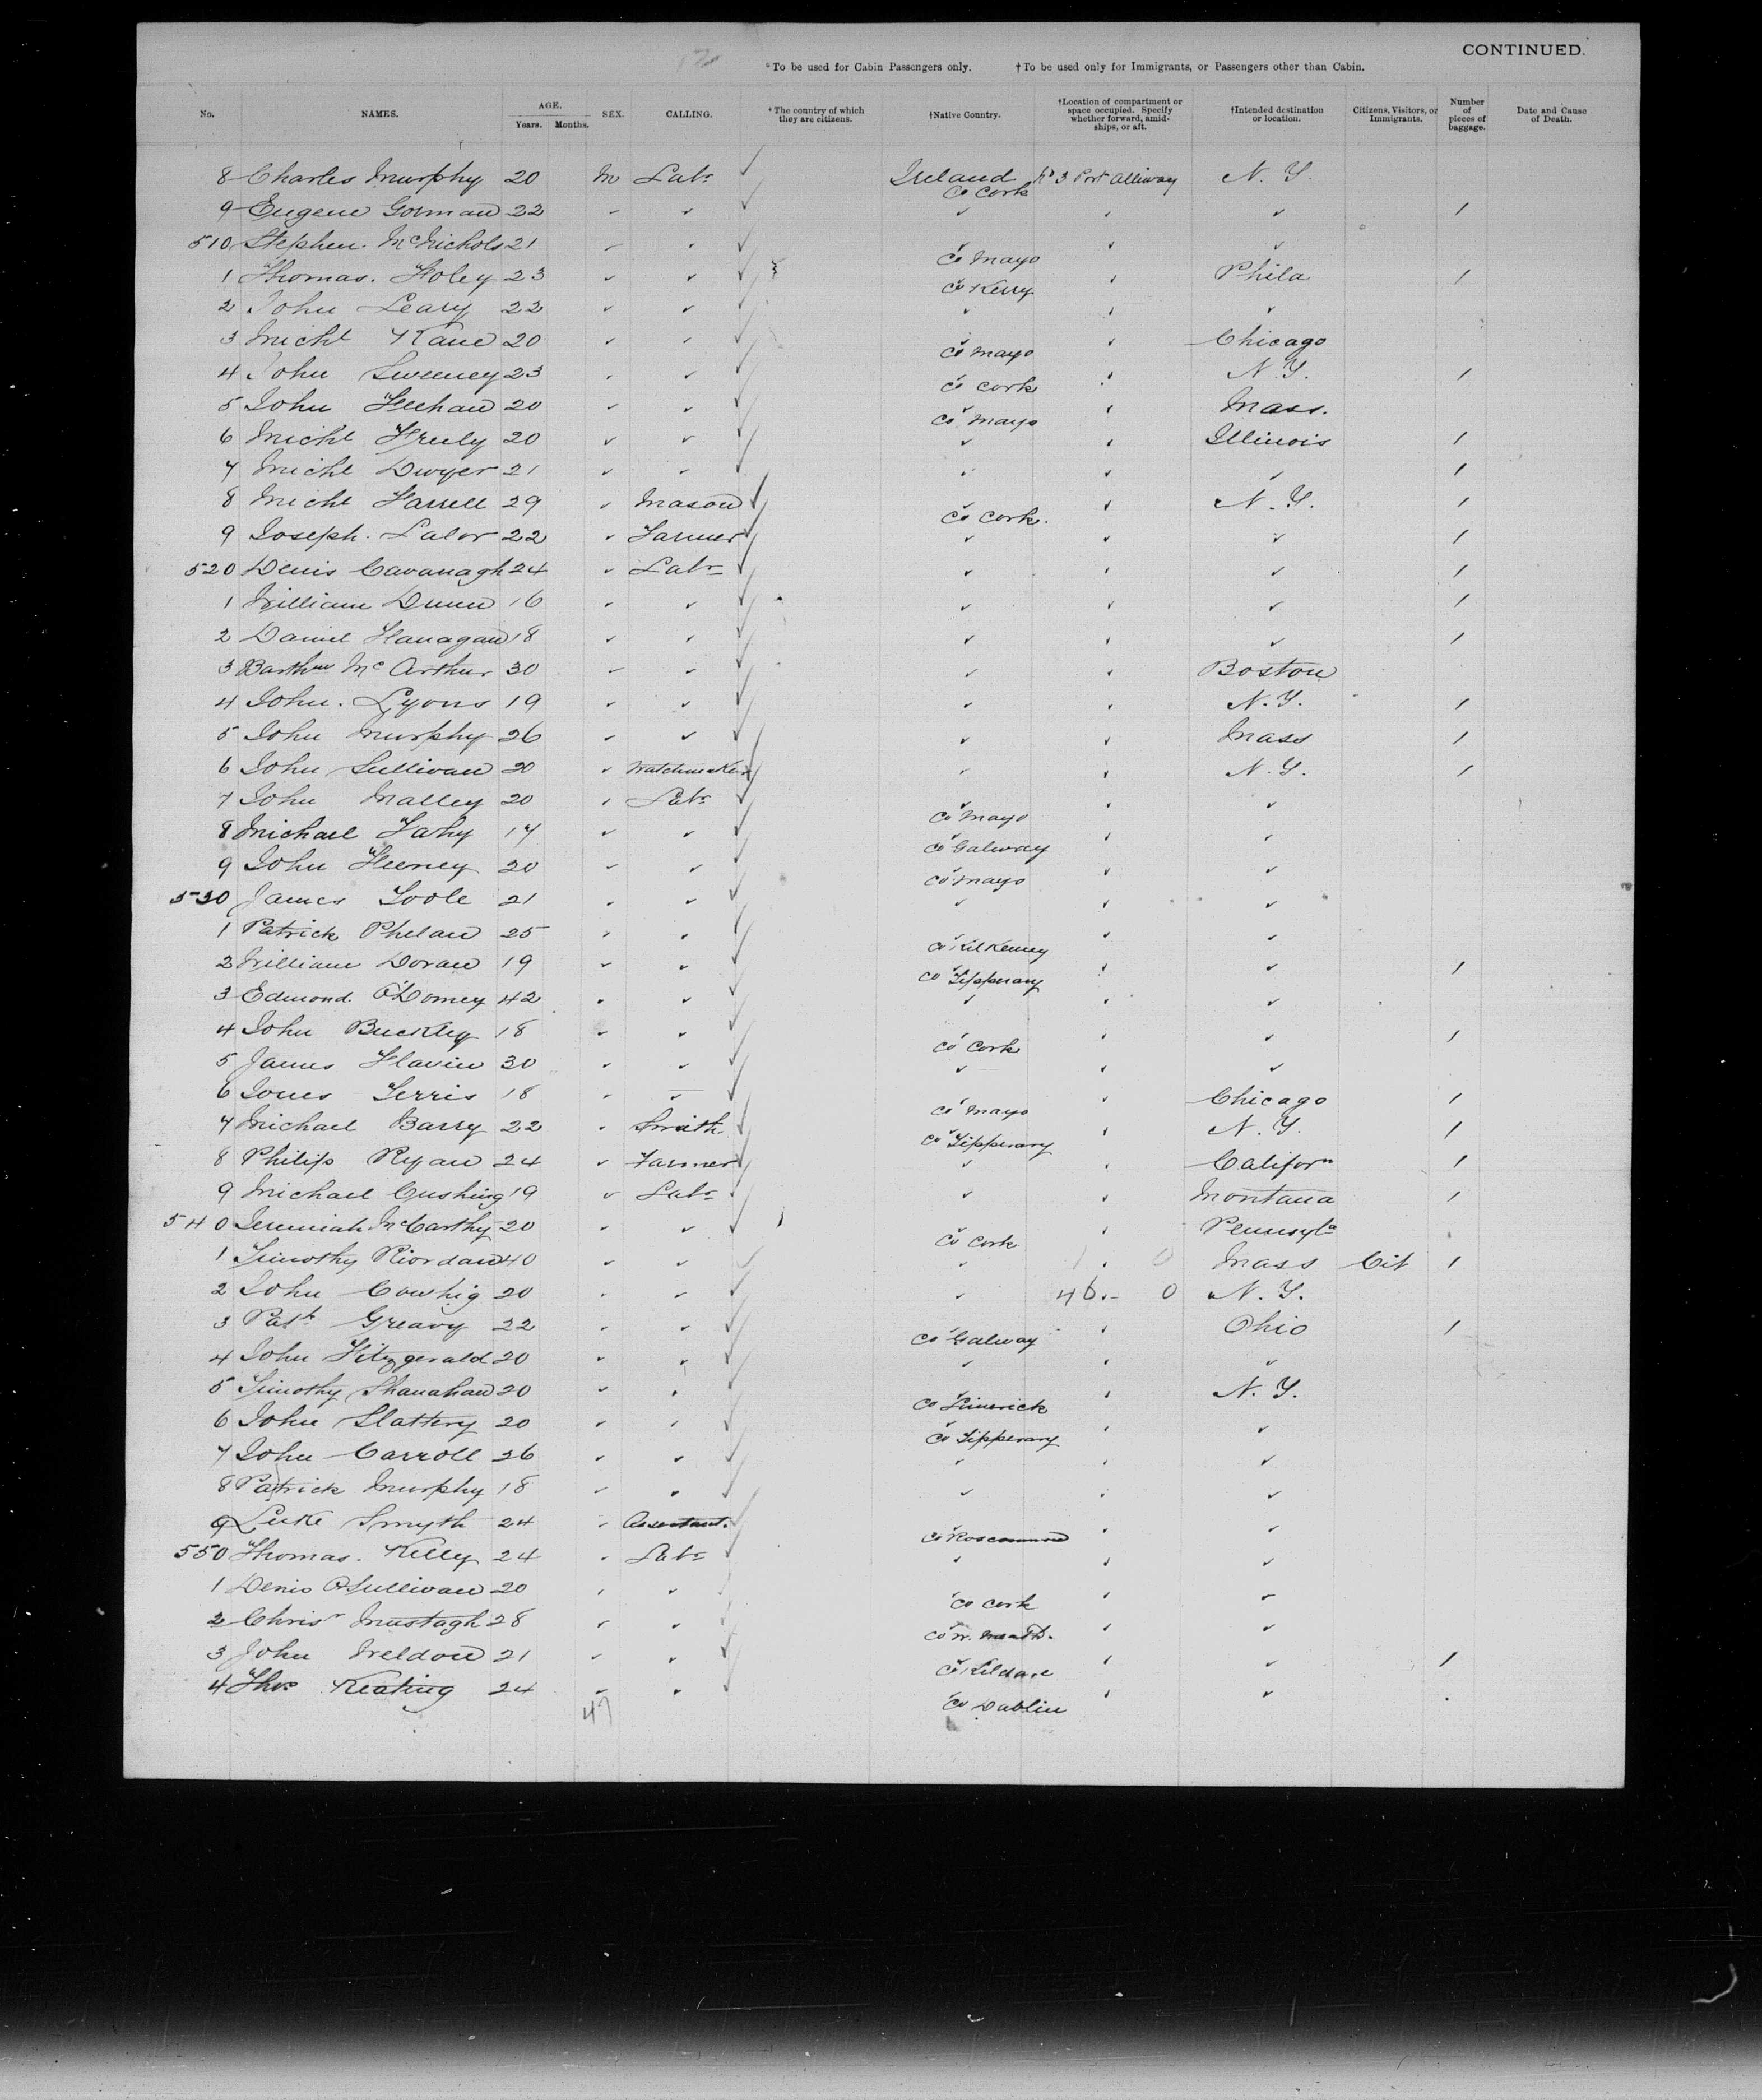 CONTINUED.
*To be used for Cabin Passengers only. †To be used only for Immigrants, or Passengers other than Cabin.
No. NAMES. AGE. Years. Months. SEX. CALLING. *The country of which they are citizens. †Native Country. †Location of compartment or space occupied. Specify whether forward, amidships, or aft. †Intended destination or location. Citizens, Visitors, or Immigrants. Number of pieces of baggage. Date and Cause of Death.
8 Charles Murphy 20 M Labr Ireland Co Cork No 3 Port Alleiway N.Y.
9 Eugene Gorman 22 " " " " " 1
510 Stephen McNichols 21 " " " Co Mayo " "
1 Thomas Foley 23 " " " Co Kerry " Phila 1
2 John Leary 22 " " " " "
3 Michl Kane 20 " " " Co Mayo " Chicago
4 John Sweeney 23 " " " Co Cork " N.Y. 1
5 John Feehan 20 " " " Co Mayo " Mass.
6 Michl Fruly 20 " " " " Illinois 1
7 Michl Dwyer 21 " " " " " 1
8 Michl Farrell 29 " Mason " Co Cork " N.Y. 1
9 Joseph Lalor 22 " Farmer " " " 1
520 Denis Cavanagh 24 " Labr " " " 1
1 William Dunn 16 " " " " " 1
2 Daniel Flanagan 18 " " " " " 1
3 Barthw McArthur 30 " " " " Boston
4 John Lyons 19 " " " " N.Y. 1
5 John Murphy 26 " " " " Mass 1
6 John Sullivan 20 " Watchmaker " " N.Y. 1
7 John Malley 20 " Labr " Co Mayo " "
8 Michael Fahy 17 " " " Co Galway " "
9 John Feeney 20 " " " Co Mayo " "
530 James Toole 21 " " " " "
1 Patrick Phelan 25 " " " Co Kilkenny " "
2 William Doran 19 " " " Co Tipperary " " 1
3 Edmond O'Domey 42 " " " " "
4 John Buckley 18 " " " Co Cork " " 1
5 James Flavin 30 " " " " "
6 Jones Ferris 18 " " " Co Mayo " Chicago 1
7 Michael Barry 22 " Smith " Co Tipperary " N.Y. 1
8 Philip Ryan 24 " Farmer " " Californ 1
9 Michael Cushing 19 " Labr " " Montana 1
540 Jeremiah McCarthy 20 " " " Co Cork " Pennsyla
1 Timothy Riordan 40 " " " " Mass Cit 1
2 John Cowhig 20 " " " 46.- 0 N.Y.
3 Patk Greavy 22 " " " Co Galway " Ohio 1
4 John Fitzgerald 20 " " " " "
5 Timothy Shanahan 20 " " " Co Limerick " N.Y.
6 John Slattery 20 " " " Co Tipperary " "
7 John Carroll 26 " " " " "
8 Patrick Murphy 18 " " " " "
9 Luke Smyth 24 " " Co Roscommon " "
550 Thomas Kelly 24 " Labr " " "
1 Denis O'Sullivan 20 " " " Co Cork " "
2 Chrisr Mustagh 28 " " " Co W. Meath " "
3 John Weldon 21 " " " Co Kildare " " 1
4 Thos Keating 24 " " " Co Dublin " "
47